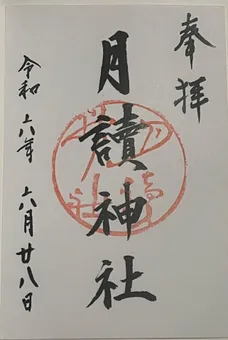 奉拝
月讀神社
令和六年六月廿八日